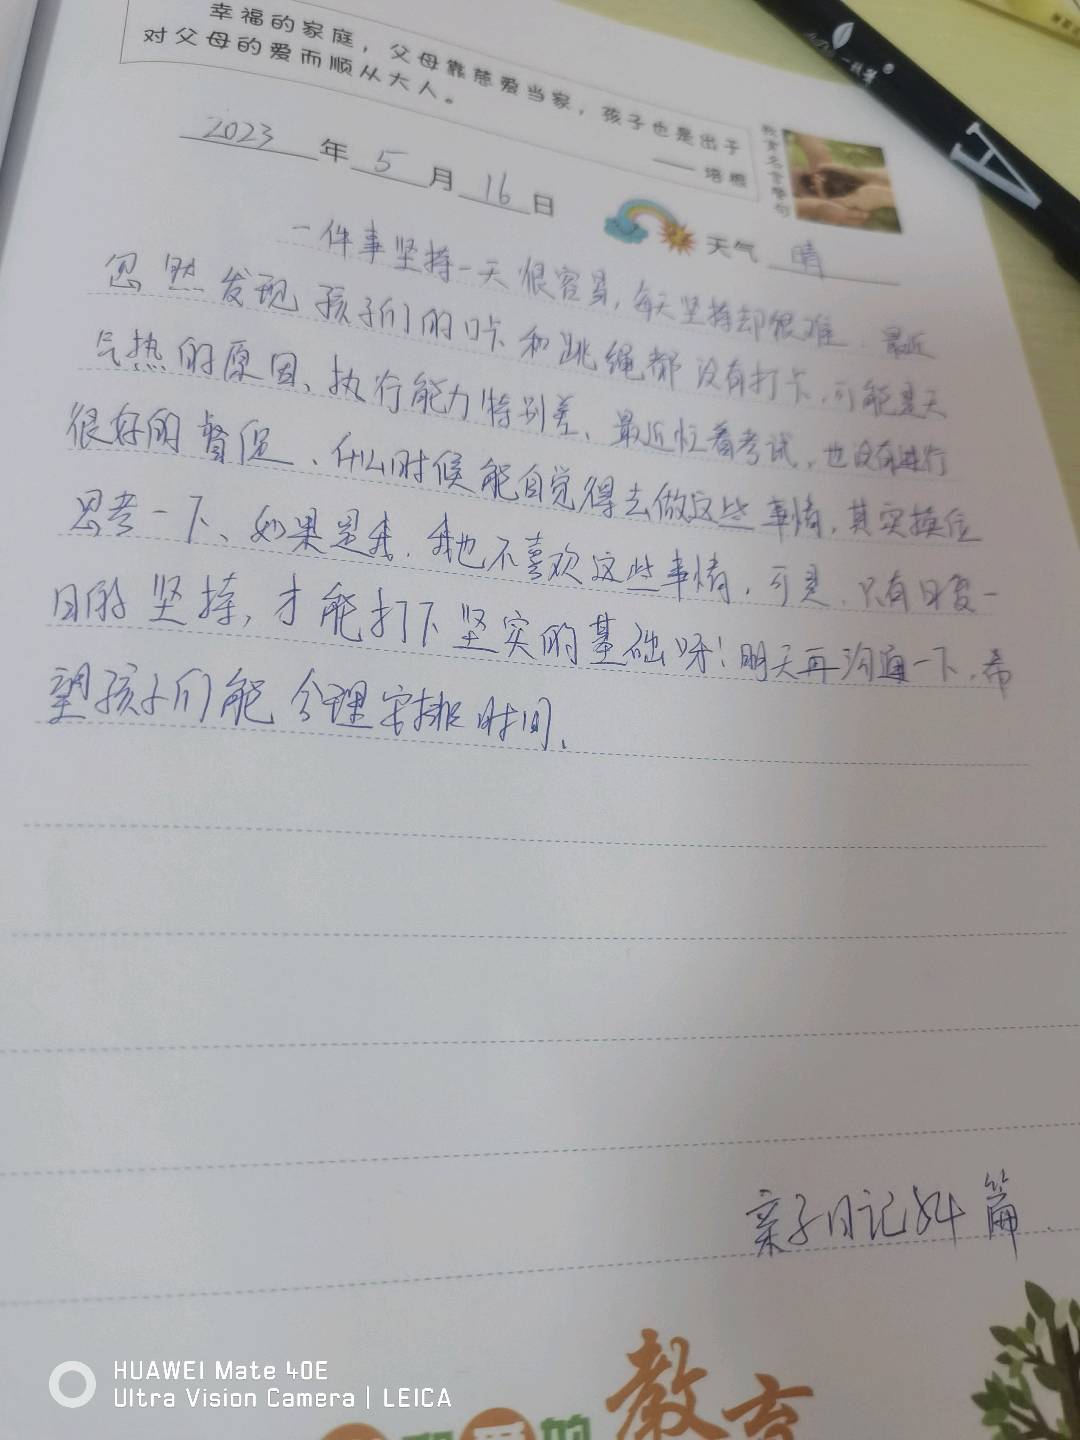 幸福的家庭，父母靠慈爱当家，孩子也是出于
对父母的爱而顺从大人。
——培根
教育名言警句
2023年5月16日
天气 晴
一件事坚持一天很容易，每天坚持却很难．最近
忽然发现孩子们的口卡和跳绳都没有打卡，可能是天
气热的原因、执行能力特别差、最近忙着考试，也没有进行
很好的督促、什么时候能自觉得去做这些事情，其实换位
思考一下、如果是我．我也不喜欢这些事情，可是．只有日复一
日的坚持，才能打下坚实的基础呀！明天再沟通一下．希
望孩子们能合理安排时间、
亲子日记54篇
HUAWEI Mate 40E
Ultra Vision Camera | LEICA
爱的教育